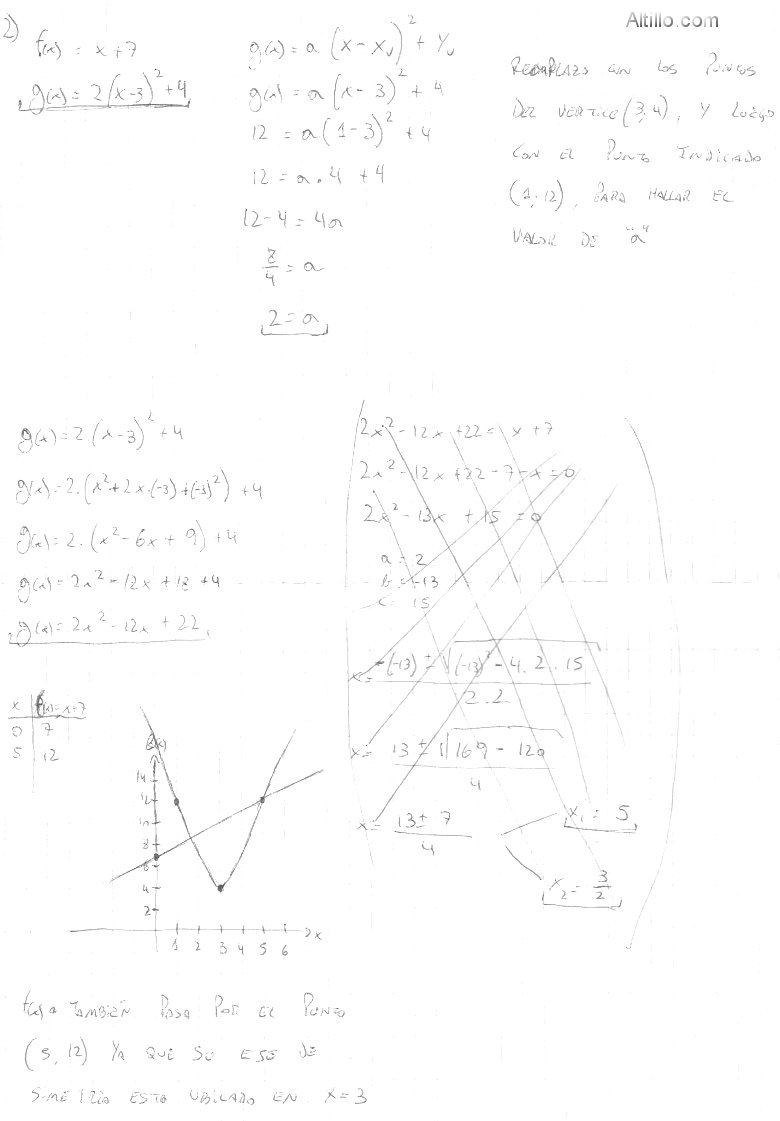 Altillo.com
2)
f(x) = x+7
g(x) = 2(x-3)² + 4
g(x) = a (x - xv)² + Yv
g(x) = a(x - 3)² + 4
12 = a(1-3)² + 4
12 = a . 4 + 4
12 - 4 = 4a
8/4 = a
2 = a
REEMPLAZO CON LOS PUNTOS
DEL VERTICE (3;4), Y LUEGO
CON EL PUNTO INDICADO
(1;12), PARA HALLAR EL
VALOR DE "a"
g(x) = 2.(x-3)² + 4
g(x) = 2.(x² + 2x.(-3) + (-3)²) + 4
g(x) = 2.(x² - 6x + 9) + 4
g(x) = 2x² - 12x + 18 + 4
g(x) = 2x² - 12x + 22
2x² - 12x + 22 = x + 7
2x² - 12x + 22 - 7 - x = 0
2x² - 13x + 15 = 0
a = 2
b = -13
c = 15
x = -(-13) ± √(-13)² - 4.2.15 / 2.2
x = 13 ± √169 - 120 / 4
x = 13 ± 7 / 4
x₁ = 5
x₂ = 3/2
x | f(x)=x+7
0 | 7
5 | 12
14
12
10
8
6
4
2
1 2 3 4 5 6 x
TAMBIÉN PASA POR EL PUNTO
(5, 12) YA QUE SU ESE DE
SIMETRÍA ESTA UBICADO EN X=3